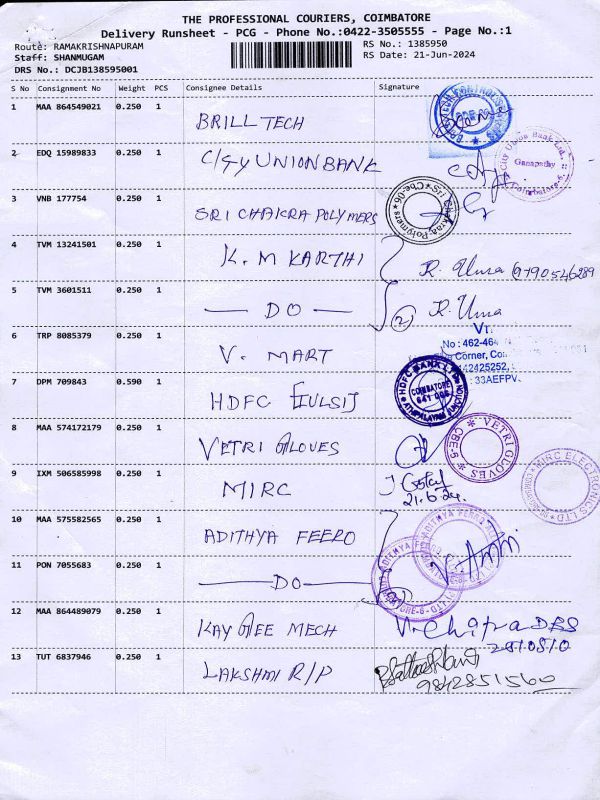 THE PROFESSIONAL COURIERS, COIMBATORE
Delivery Runsheet - PCG - Phone No.:0422-3505555 - Page No.:1
Route: RAMAKRISHNAPURAM RS No.: 1385950
Staff: SHANMUGAM RS Date: 21-Jun-2024
DRS No.: DCJB138595001
S No Consignment No Weight PCS Consignee Details Signature
1 MAA 864549021 0.250 1 BRILL TECH
2 EDQ 15989833 0.250 1 CITY UNION BANK
City Union Bank Ltd.,
Ganapathy
Coimbatore-6.
3 VNB 177754 0.250 1 SRI CHAKRA POLYMERS
Sri Chakra Polymers Cbe-06
4 TVM 13241501 0.250 1 K. M KARTHI R. Uma 9790546289
5 TVM 3601511 0.250 1 — DO — (2) R. Uma
6 TRP 8085379 0.250 1 V. MART
No : 462-464
Corner,
42425252,
33AEFPV
7 DPM 709843 0.590 1 HDFC
HDFC BANK LTD
COIMBATORE
641 006
8 MAA 574172179 0.250 1 VETRI GLOVES
VETRI GLOVES CBE-6
9 IXM 506585998 0.250 1 MIRC
21.6.24.
MIRC ELECTRONICS LTD
10 MAA 575582565 0.250 1 ADITHYA FEERO
11 PON 7055683 0.250 1 — DO —
12 MAA 864489079 0.250 1 KAY GEE MECH V. Chitra DRS
2810810
13 TUT 6837946 0.250 1 LAKSHMI R/P
9842851560